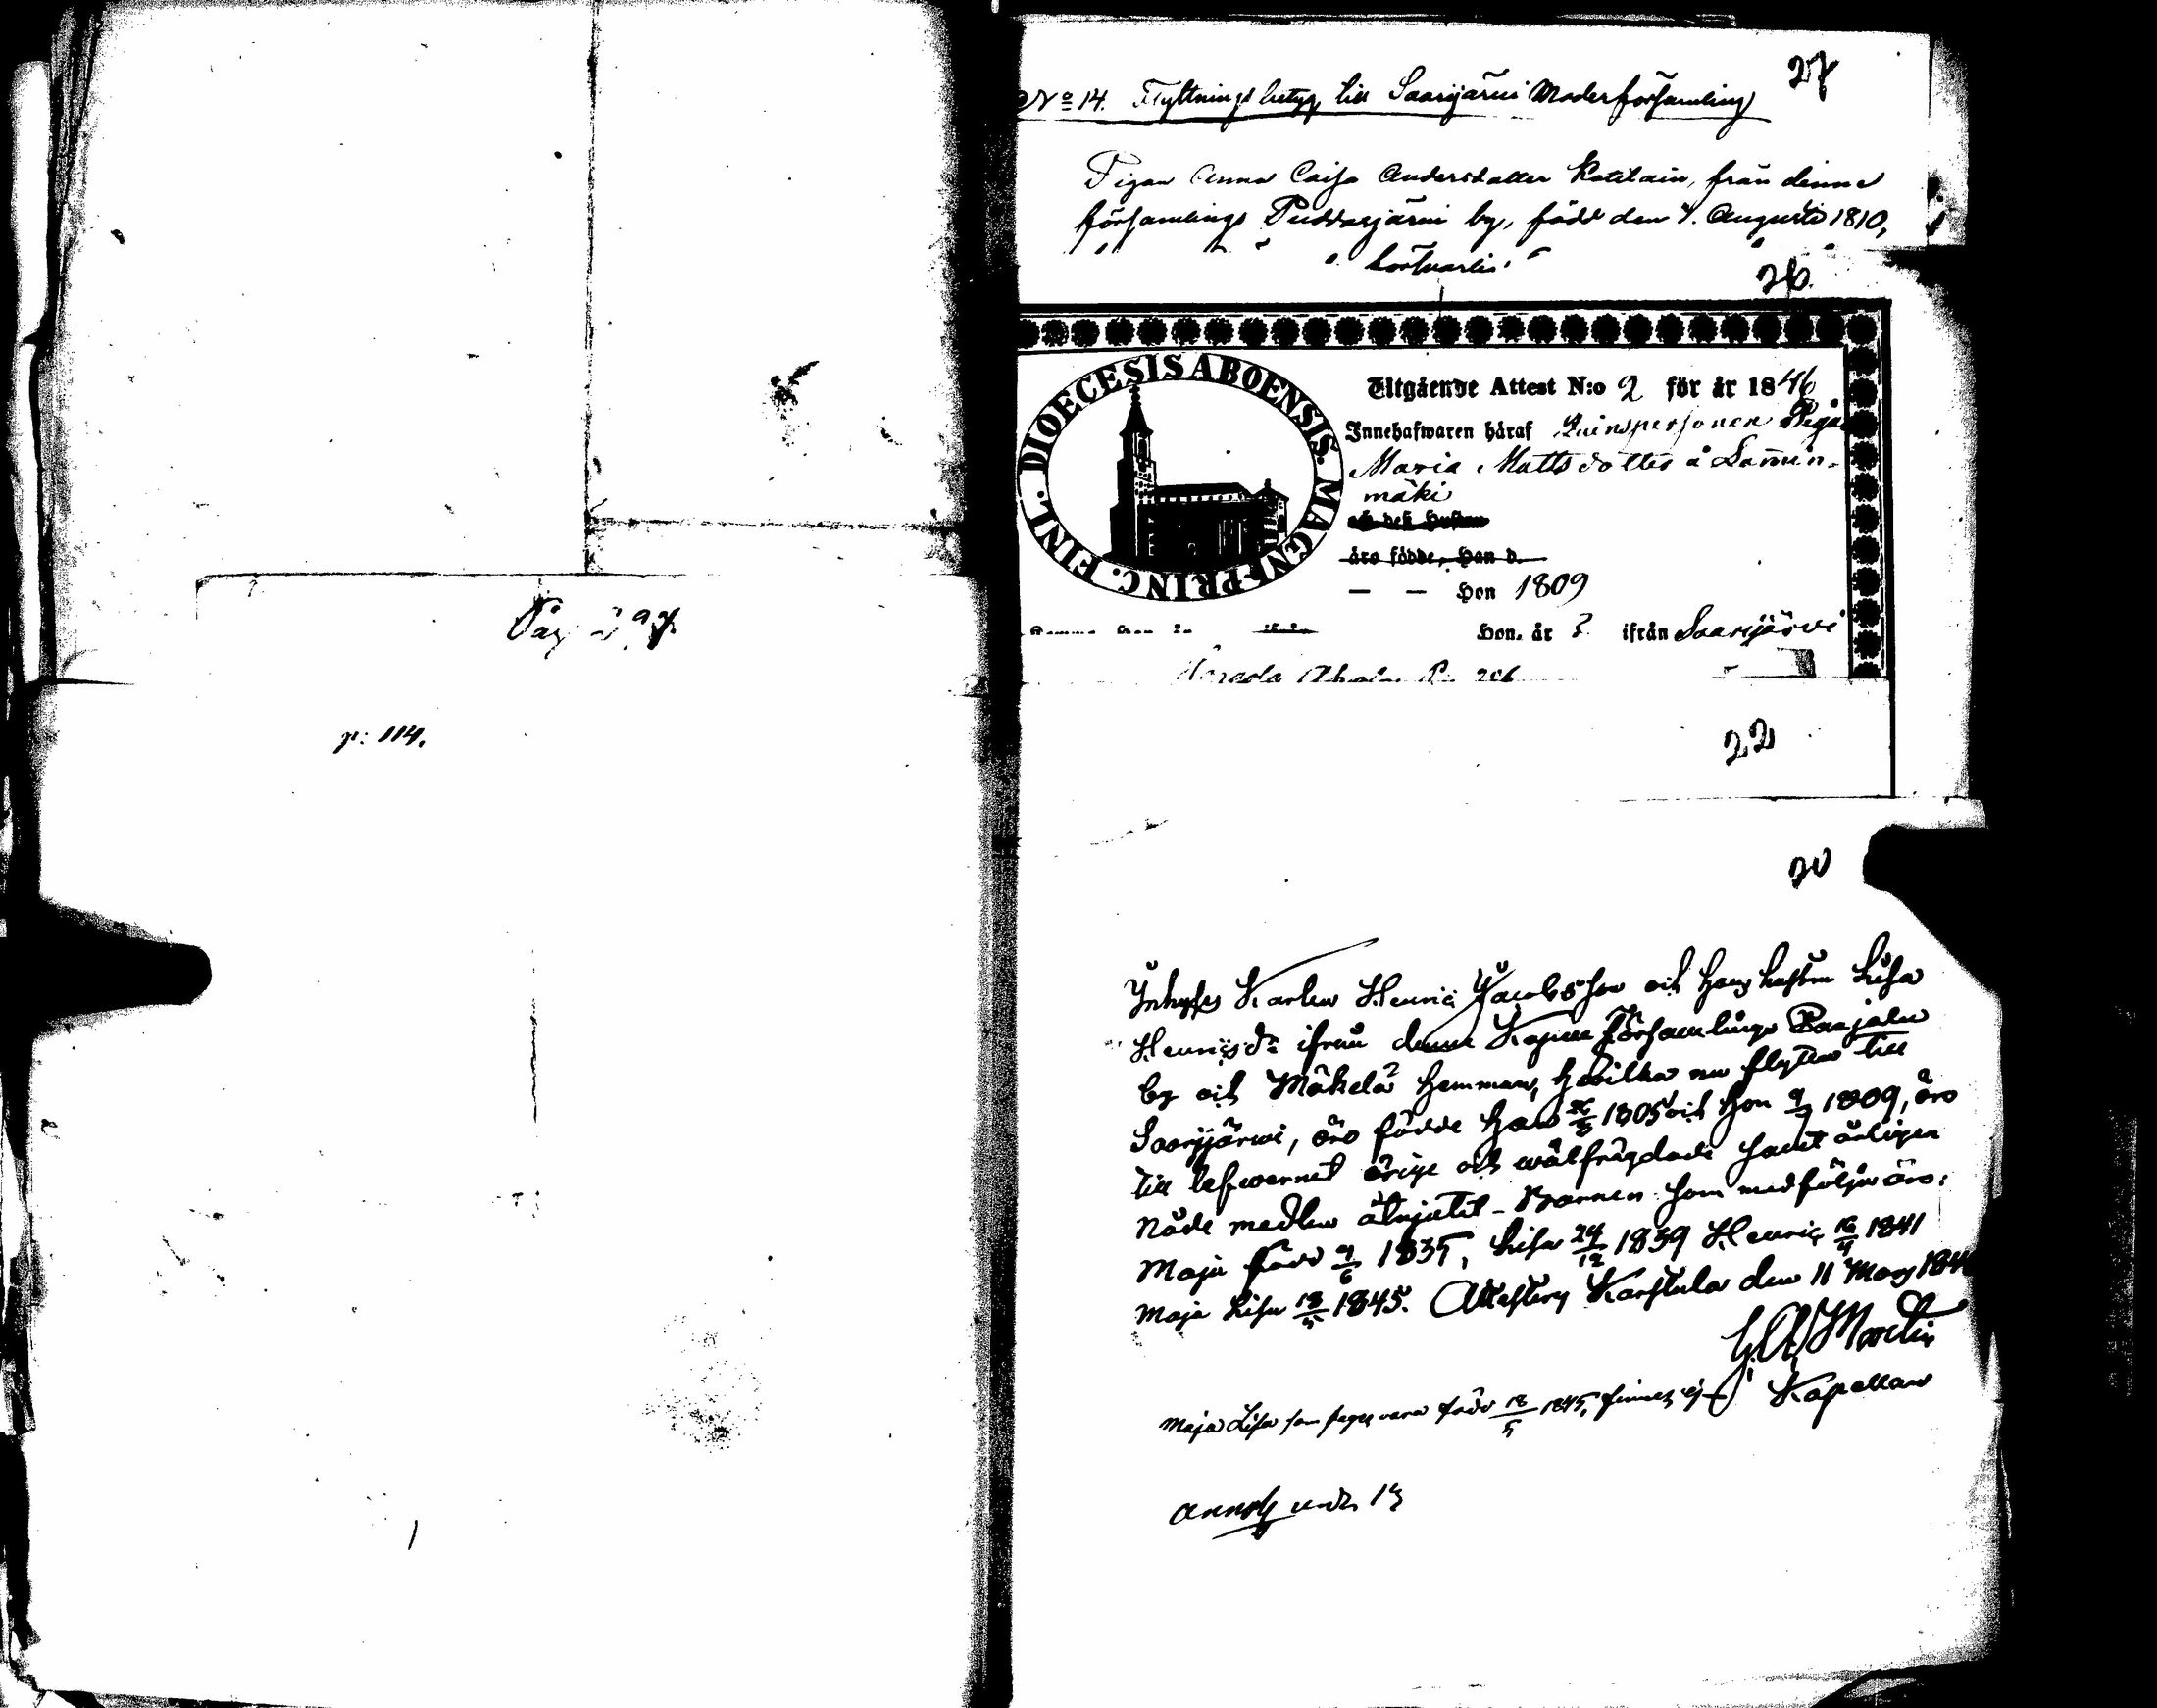 Pag. 297.
p: 114.
27
No 14. Flyttningsbetyg, till Saarijärvi Moderförsamling
Pigan Anna Caisa Andersdotter Kotilain, från denna
församlings Puddasjärvi by, född den 4. Augusti 1810,
26.
DIOECESIS ABOENSIS. MAGNI PRINC. FINL.
Utgående Attest N:o 2 för år 1846
Innehafwaren häraf Qvinspersonen Pigan
Maria Mattsdotter å Lamin-
mäki
och dess Hustru
äro födde, Han d.
— — Hon 1809
Hon. år 3 ifrån Saarijärvi
206
22
20
Inhyses Karlen Henric Jacobsson och hans hustru Lisa
Henricsdr ifrån denne Kapell Församlings Paajala
by och Mäkelä hemman, hwilka nu flytta till
Saarijärwi, äro födde han 1805 och hon 1809, äro
till lefwernet ärlige och wälfrägdade samt ärligen
Nåde medlen åtnjutit - Barnen som medfölja äro:
Maja född 9/6 1835, Lisa 24/12 1839 Henric 16/4 1841
Maja Lisa 18/5 1845. Attesterar Karstula den 11 May 1846
Martin
Kapellan
Maja Lisa som säges vara född 18/5 1845, finnes ej